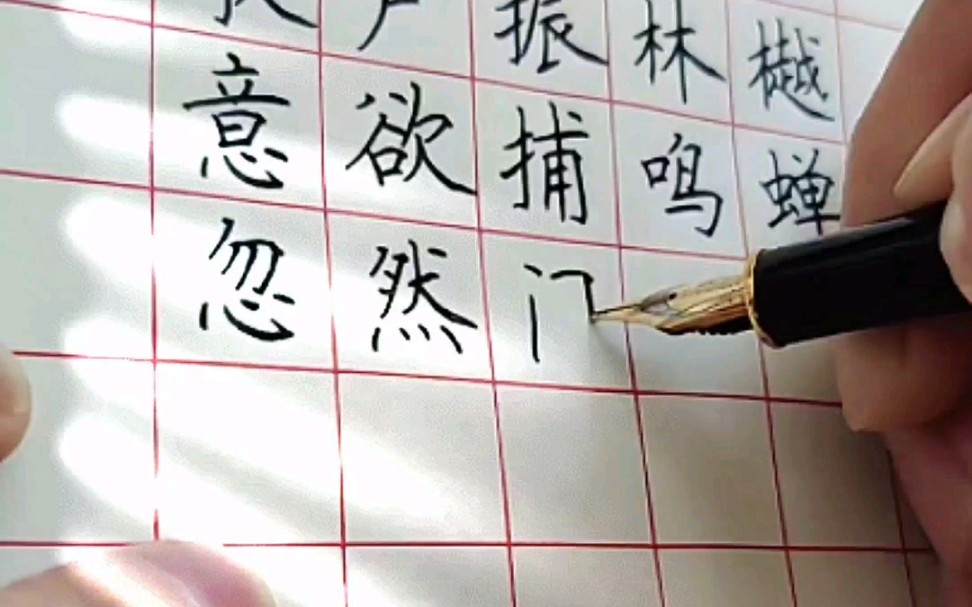 振林樾
意欲捕鸣蝉
忽然门